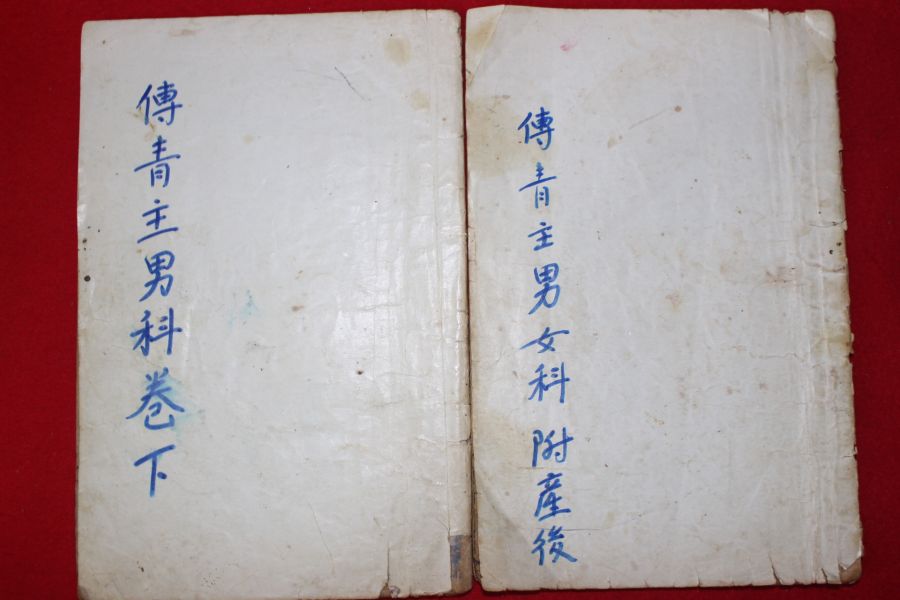 傳青主男科卷下
傳青主男女科 附產後